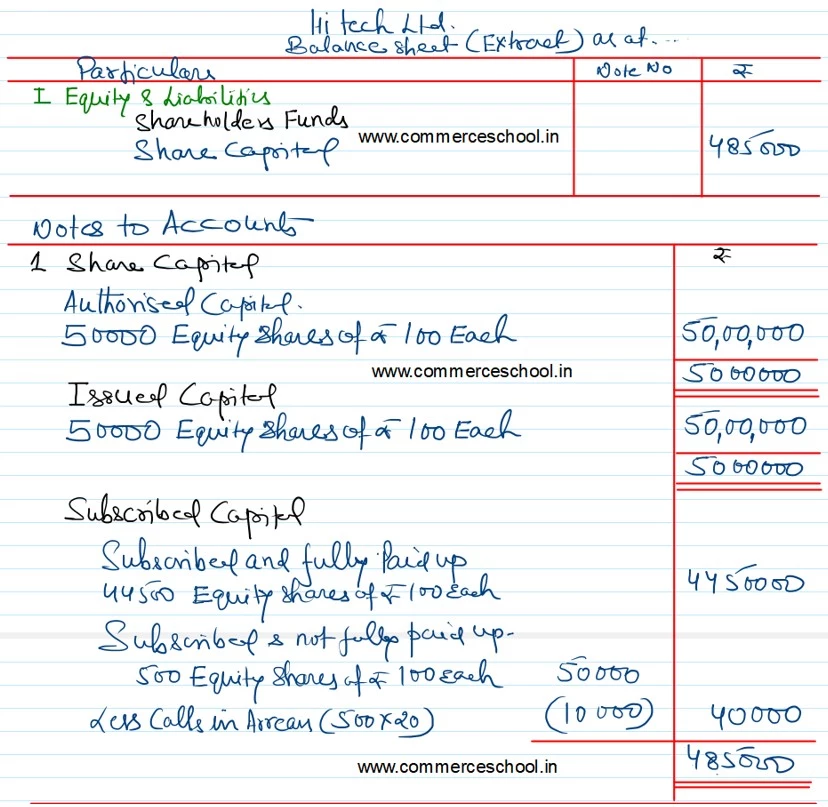 Hi tech Ltd.
Balance sheet (Extract) as at....
Particulars Note No ₹
I Equity & Liabilities
Shareholders Funds
Share Capital www.commerceschool.in 485000
Notes to Accounts
1 Share Capital ₹
Authorised Capital.
50000 Equity Shares of ₹ 100 Each 50,00,000
www.commerceschool.in 5000000
Issued Capital
50000 Equity Shares of ₹ 100 Each 50,00,000
5000000
Subscribed Capital
Subscribed and fully Paid up
44500 Equity Shares of ₹ 100 Each 4450000
Subscribed & not fully paid up-
500 Equity Shares of ₹ 100 each 50000
Less Calls in Arrears (500×20) (10000) 40000
485000
www.commerceschool.in